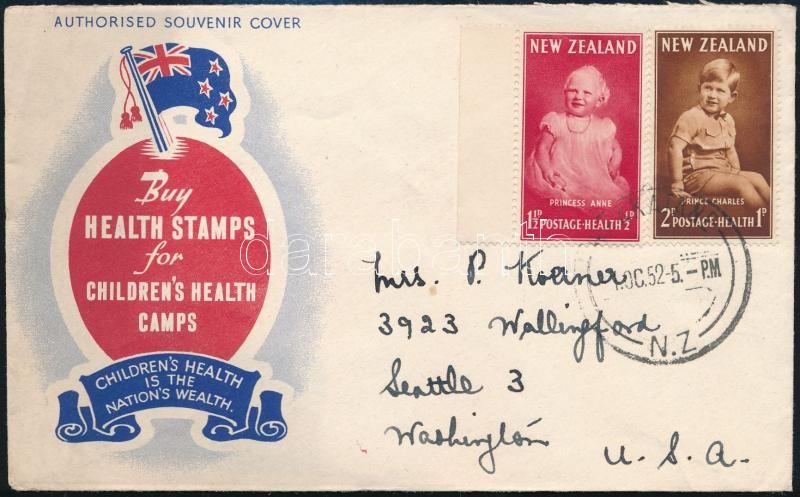 AUTHORISED SOUVENIR COVER
Buy
HEALTH STAMPS
for
CHILDREN'S HEALTH
CAMPS
CHILDREN'S HEALTH
IS THE
NATION'S WEALTH.
NEW ZEALAND
PRINCESS ANNE
1½D POSTAGE-HEALTH ½D
NEW ZEALAND
PRINCE CHARLES
2D POSTAGE-HEALTH 1D
OC.52-5.-PM
N.Z.
Mrs. P. Koerner
3923 Wallingford
Seattle 3
Washington
U.S.A.
darabanth